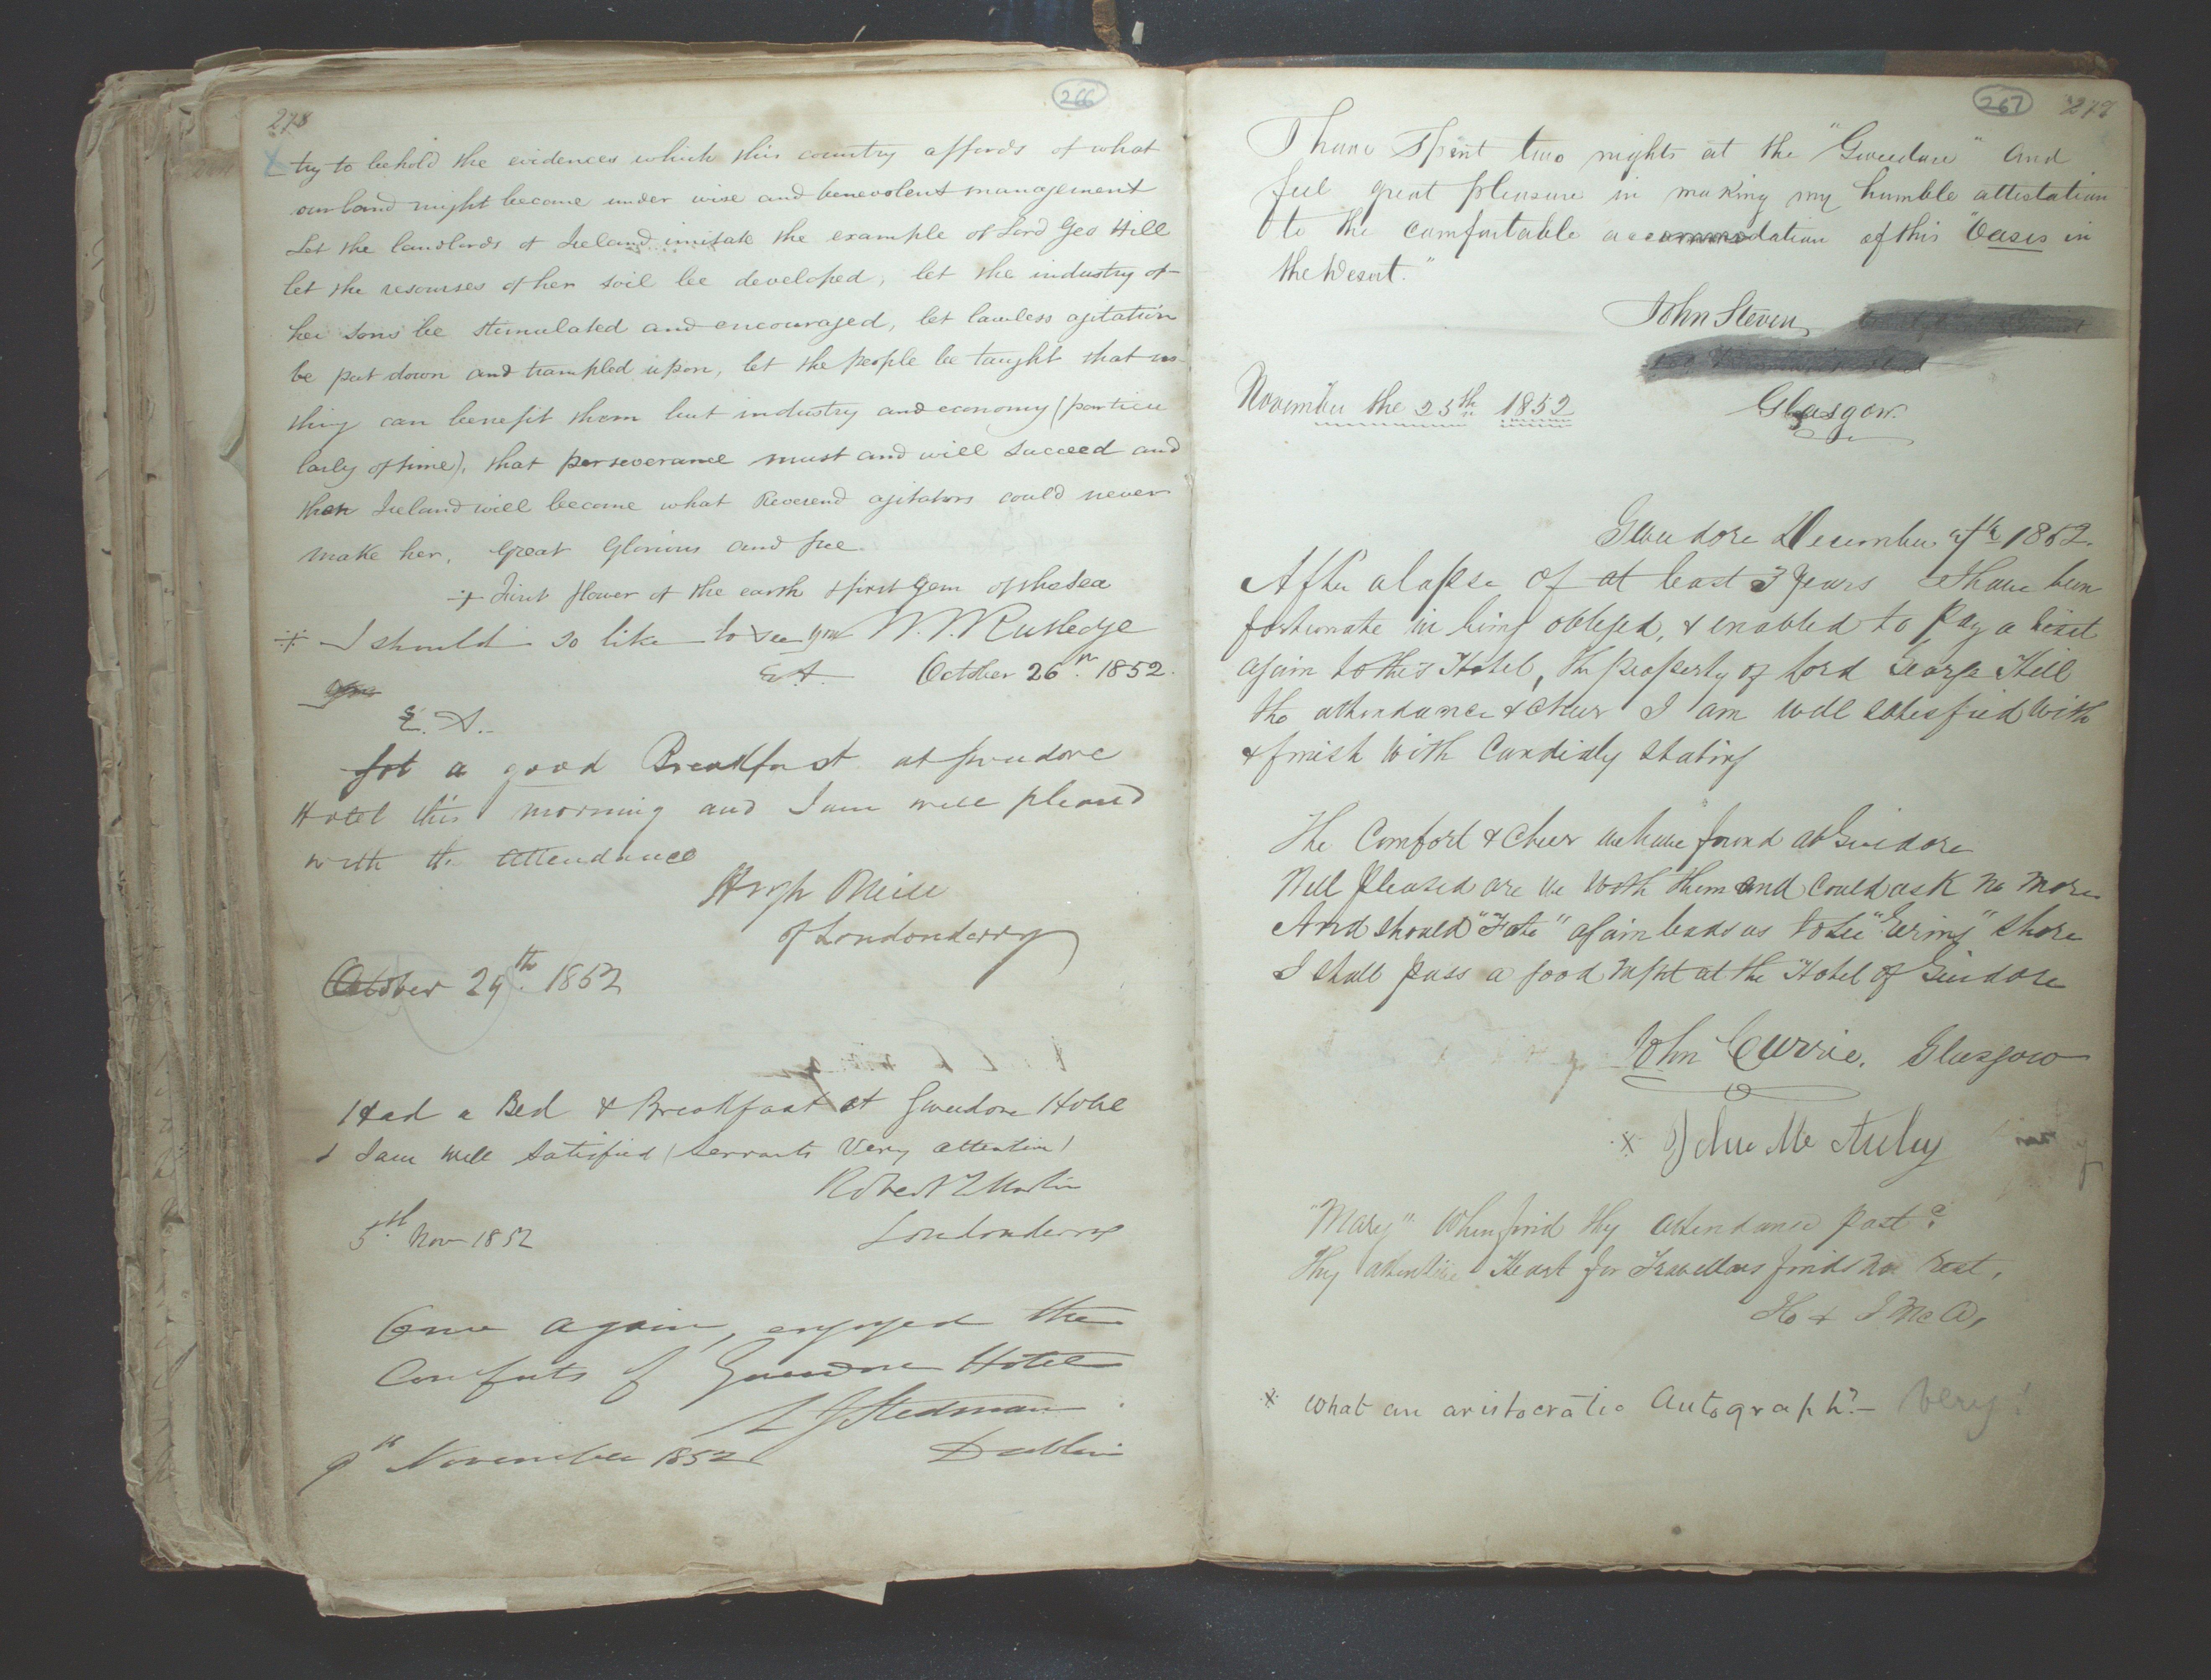 278
266
try to behold the evidences which this country affords of what
our land might become under wise and benevolent management
Let the landlords of Ireland imitate the example of Lord Geo Hill
let the resourses of her soil be developed, let the industry of
her sons be stimulated and encouraged, let lawless agitation
be put down and trampled upon, let the people be taught that no-
thing can benefit them but industry and economy (particu
larly of time), that perseverance must and will succeed and
then Ireland will become what Reverend agitators could never
make her, Great Glorious and free.
+ First flower of the earth & first gem of the sea
I should so like to see you W. Rutledge
E A. October 26th. 1852.
E. A.
Got a good Breakfast at Gweedore
Hotel this morning and I am well pleased
with the attendance
Hugh ONeill
of Londonderry
October 29th. 1852
Had a Bed & Breakfast at Gweedore Hotel
& I am well satisfied (servants very attentive)
Robert Martin
5th Nov 1852 Londonderry
Once again, enjoyed the
Comforts of Gweedore Hotel
Stedman
9th November 1852 Dublin
267 279
I have Spent two nights at the "Gweedore" and
feel great pleasure in making my humble attestation
to the comfortable accommodation of this "Oasis in
the Desert."
John Steven
November the 25th 1852 Glasgow.
Gweedore December 1852.
After a lapse of at least 3 Years I have been
fortunate in being obliged, & enabled to pay a visit
again to this Hotel, the property of Lord George Hill
the attendance & cheer I am well satisfied with
& finish with Candidly stating
The Comfort & Cheer we have found at Gweedore
Well pleased are we with them and could ask no more
And should "Fate" again leads us to see "Erins" shore
I shall pass a good night at the Hotel of Gweedore
John Currie. Glasgow
x John Mc Auley
"Mary" when find thy attendance past?
Thy attentive Heart for Travellers finds no rest.
J Mc A,
x What an aristocratic Autograph?- Very!